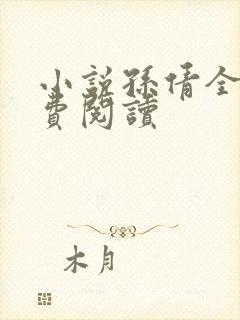 小説孫倩全
費閱讀
木月